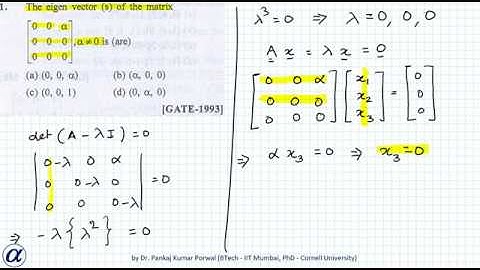 1. The eigen vector (s) of the matrix
[0 0 α
0 0 0
0 0 0], α ≠ 0 is (are)
(a) (0, 0, α) (b) (α, 0, 0)
(c) (0, 0, 1) (d) (0, α, 0)
[GATE-1993]
det (A - λI) = 0
|0-λ 0 α
0 0-λ 0
0 0 0-λ| = 0
⇒ -λ{λ²} = 0
λ³ = 0 ⇒ λ = 0, 0, 0
A x = λ x = 0
[0 0 α
0 0 0
0 0 0] [x₁
x₂
x₃] = [0
0
0]
⇒ α x₃ = 0 ⇒ x₃ = 0
α
by Dr. Pankaj Kumar Porwal (BTech - IIT Mumbai, PhD - Cornell University)